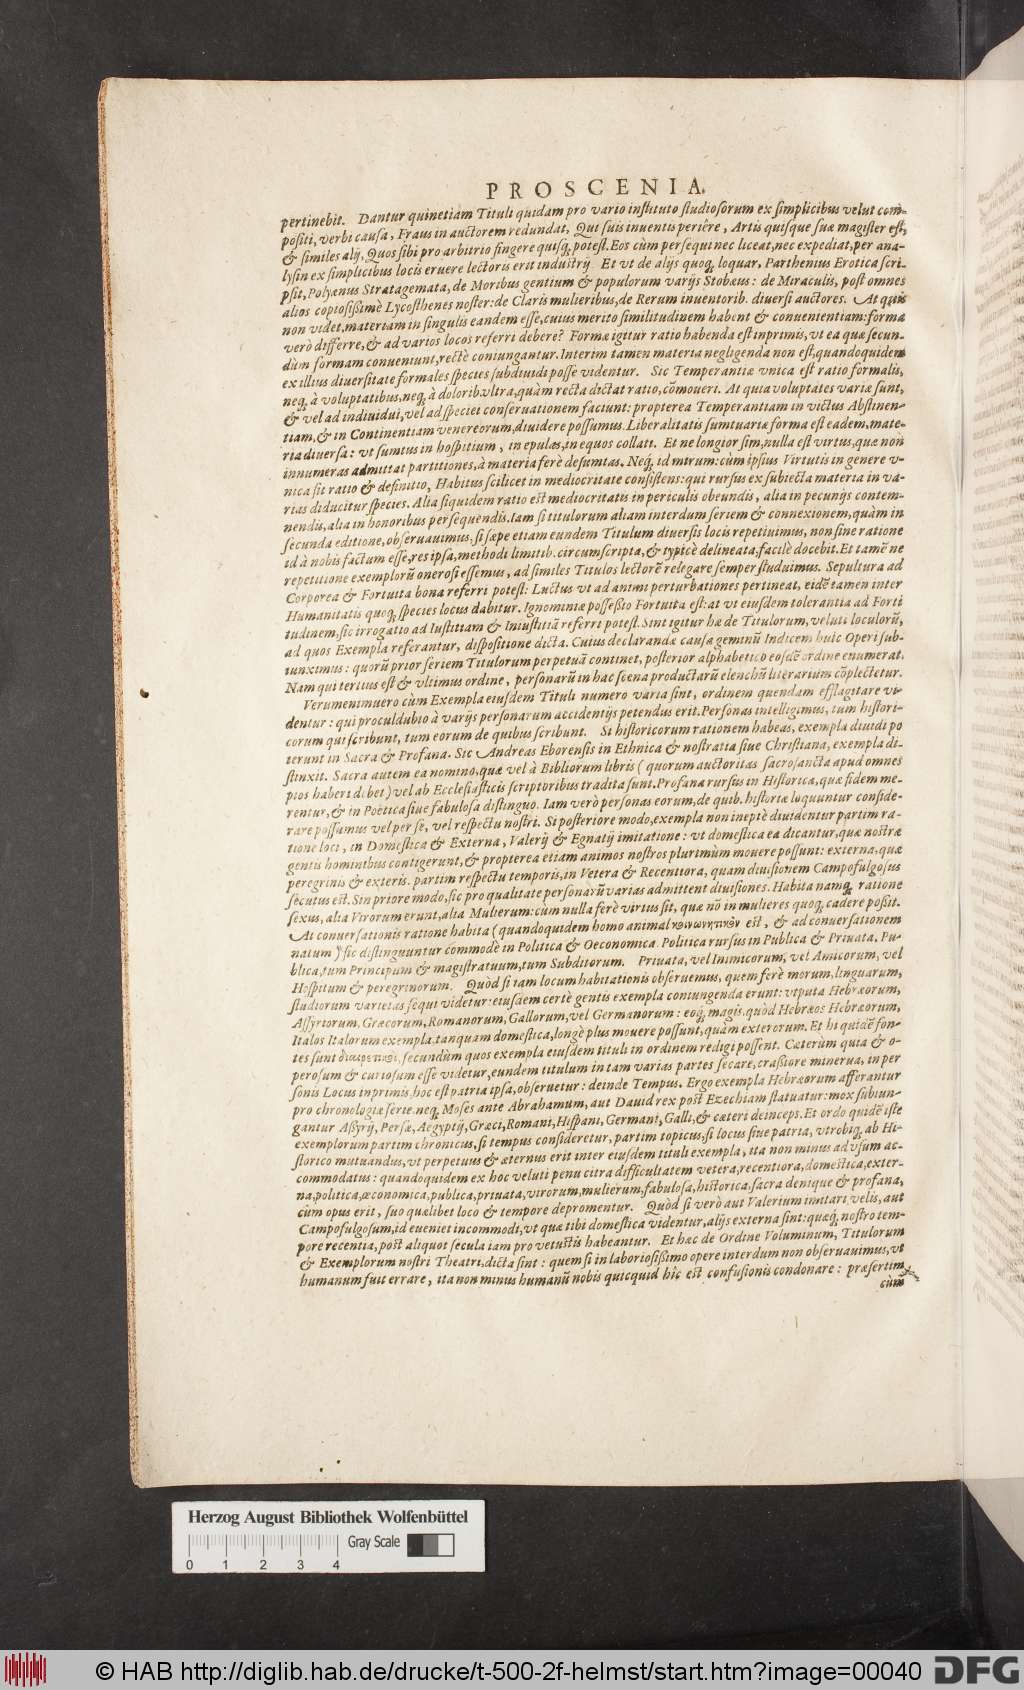 PROSCENIA.
pertinebit. Dantur quinetiam Tituli quidam pro vario instituto studiosorum ex simplicibus velut com-
positi, verbi causa, Fraus in auctorem redundat, Qui suis inuentis periêre, Artis quisque suæ magister est,
& similes alij, Quos sibi pro arbitrio fingere quisq; potest. Eos cùm persequi nec liceat, nec expediat, per ana-
lysin ex simplicibus locis eruere lectoris erit industrij. Et vt de alijs quoq; loquar, Parthenius Erotica scri-
psit, Polyænus Stratagemata, de Moribus gentium & populorum varijs Stobæus: de Miraculis, post omnes
alios copiosissimè Lycosthenes noster: de Claris mulieribus, de Rerum inuentorib. diuersi auctores. At quis
non videt, materiam in singulis eandem esse, cuius merito similitudinem habent & conuenientiam: forma
verò differre, & ad varios locos referri debere? Formæ igitur ratio habenda est inprimis, vt ea quæ secun-
dùm formam conueniunt, rectè coniungantur. Interim tamen materia negligenda non est, quandoquidem
ex illius diuersitate formales species subdiuidi posse videntur. Sic Temperantiæ vnica est ratio formalis,
neq; à voluptatibus, neq; à dolorib. vltra, quàm recta dictat ratio, cõmoueri. At quia voluptates variæ sunt,
& vel ad indiuidui, vel ad speciei conseruationem faciunt: propterea Temperantiam in victus Abstinen-
tiam, & in Continentiam venereorum, diuidere possumus. Liberalitatis sumtuariæ forma est eadem, mate-
ria diuersa: vt sumtus in hospitium, in epulas, in equos collati. Et ne longior sim, nulla est virtus, quæ non
innumeras admittat partitiones, à materia ferè desumtas. Neq; id mirum: cùm ipsius Virtutis in genere v-
nica sit ratio & definitio, Habitus scilicet in mediocritate consistens: qui rursus ex subiecta materia in va-
rias diducitur species. Alia siquidem ratio est mediocritatis in periculis obeundis, alia in pecunijs contem-
nendis, alia in honoribus persequendis. Iam si titulorum aliam interdum seriem & connexionem, quàm in
secunda editione, obseruauimus, si sæpe etiam eundem Titulum diuersis locis repetiuimus, non sine ratione
id à nobis factum esse, res ipsa, methodi limitib. circumscripta, & typicè delineata, facilè docebit. Et tamẽ ne
repetitione exemplorũ onerosi essemus, ad similes Titulos lectorẽ relegare semper studuimus. Sepultura ad
Corporea & Fortuita bona referri potest: Luctus vt ad animi perturbationes pertineat, eidẽ tamen inter
Humanitatis quoq; species locus dabitur. Ignominiæ possessio Fortuita est: at vt eiusdem tolerantia ad Forti
tudinem, sic irrogatio ad Iustitiam & Iniustitiã referri potest. Sint igitur hæ de Titulorum, veluti loculorũ,
ad quos Exempla referantur, dispositione dicta. Cuius declarandæ causa geminũ Indicem huic Operi sub-
iunximus: quorũ prior seriem Titulorum perpetuã continet, posterior alphabetico eosdẽ ordine enumerat.
Nam qui tertius est & vltimus ordine, personarũ in hac scena productarũ elenchũ literarium cõplectetur.
Verumenimuero cùm Exempla eiusdem Tituli numero varia sint, ordinem quendam efflagitare vi-
dentur: qui proculdubio à varijs personarum accidentijs petendus erit. Personas intelligimus, tum histori-
corum qui scribunt, tum eorum de quibus scribunt. Si historicorum rationem habeas, exempla diuidi po
terunt in Sacra & Profana. Sic Andreas Eborensis in Ethnica & nostratia siue Christiana, exempla di-
stinxit. Sacra autem ea nomino, quæ vel à Bibliorum libris (quorum auctoritas sacrosancta apud omnes
pios haberi debet) vel ab Ecclesiasticis scriptoribus tradita sunt. Profana rursus in Historica, quæ fidem me-
rentur, & in Poëtica siue fabulosa distinguo. Iam verò personas eorum, de quib. historiæ loquuntur conside-
rare possumus vel per se, vel respectu nostri. Si posteriore modo, exempla non ineptè diuidentur partim ra-
tione loci, in Domestica & Externa, Valerij & Egnatij imitatione: vt domestica ea dicantur, quæ nostræ
gentis hominibus contigerunt, & propterea etiam animos nostros plurimùm mouere possunt: externa, quæ
peregrinis & exteris. partim respectu temporis, in Vetera & Recentiora, quam diuisionem Campofulgosus
secutus est. Sin priore modo, sic pro qualitate personarũ varias admittent diuisiones. Habita namq; ratione
sexus, alia Virorum erunt, alia Mulierum: cùm nulla ferè virtus sit, quæ nõ in mulieres quoq; cadere possit.
At conuersationis ratione habita (quandoquidem homo animal κοινωνητικὸν est, & ad conuersationem
natum) sic distinguuntur commodè in Politica & Oeconomica. Politica rursus in Publica & Priuata. Pu-
blica, tum Principum & magistratuum, tum Subditorum. Priuata, vel Inimicorum, vel Amicorum, vel
Hospitum & peregrinorum. Quòd si iam locum habitationis obseruemus, quem ferè morum, linguarum,
studiorum varietas sequi videtur: eiusdem certè gentis exempla coniungenda erunt: vtputa Hebræorum,
Assyriorum, Græcorum, Romanorum, Gallorum, vel Germanorum: eoq; magis, quòd Hebræos Hebræorum,
Italos Italorum exempla, tanquam domestica, longè plus mouere possunt, quàm exterorum. Et hi quidẽ fon-
tes sunt διαιρετικοὶ, secundùm quos exempla eiusdem tituli in ordinem redigi possent. Cæterùm quia & o-
perosum & curiosum esse videtur, eundem titulum in tam varias partes secare, crassiore minerua, in per
sonis Locus inprimis, hoc est patria ipsa, obseruetur: deinde Tempus. Ergo exempla Hebræorum afferantur
pro chronologiæ serie. neq; Moses ante Abrahamum, aut Dauid rex post Ezechiam statuatur: mox subiun-
gantur Assyrij, Persæ, Aegyptij, Græci, Romani, Hispani, Germani, Galli, & cæteri deinceps. Et ordo quidẽ iste
exemplorum partim chronicus, si tempus consideretur, partim topicus, si locus siue patria, vtrobiq; ab Hi-
storico mutuandus, vt perpetuus & æternus erit inter eiusdem tituli exempla, ita non minus ad vsum ac-
commodatus: quandoquidem ex hoc veluti penu citra difficultatem vetera, recentiora, domestica, exter-
na, politica, œconomica, publica, priuata, virorum, mulierum, fabulosa, historica, sacra denique & profana,
cùm opus erit, suo quælibet loco & tempore depromentur. Quòd si verò aut Valerium imitari velis, aut
Campofulgosum, id eueniet incommodi, vt quæ tibi domestica videntur, alijs externa sint: quæq; nostro tem-
pore recentia, post aliquot secula iam pro vetustis habeantur. Et hæc de Ordine Voluminum, Titulorum
& Exemplorum nostri Theatri, dicta sint: quem si in laboriosissimo opere interdum non obseruauimus, vt
humanum fuit errare, ita non minus humanũ nobis quicquid hîc est confusionis condonare: præsertim
cùm
Herzog August Bibliothek Wolfenbüttel
Gray Scale
0 1 2 3 4
© HAB http://diglib.hab.de/drucke/t-500-2f-helmst/start.htm?image=00040
DFG